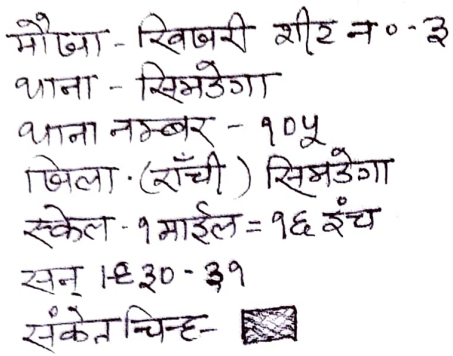 मौजा - खिजरी शीट न० - ३
थाना - सिमडेगा
थाना नम्बर - १०५
जिला - (राँची) सिमडेगा
स्केल - १ माईल = १६ इंच
सन् १९३० - ३१
संकेत चिन्ह -